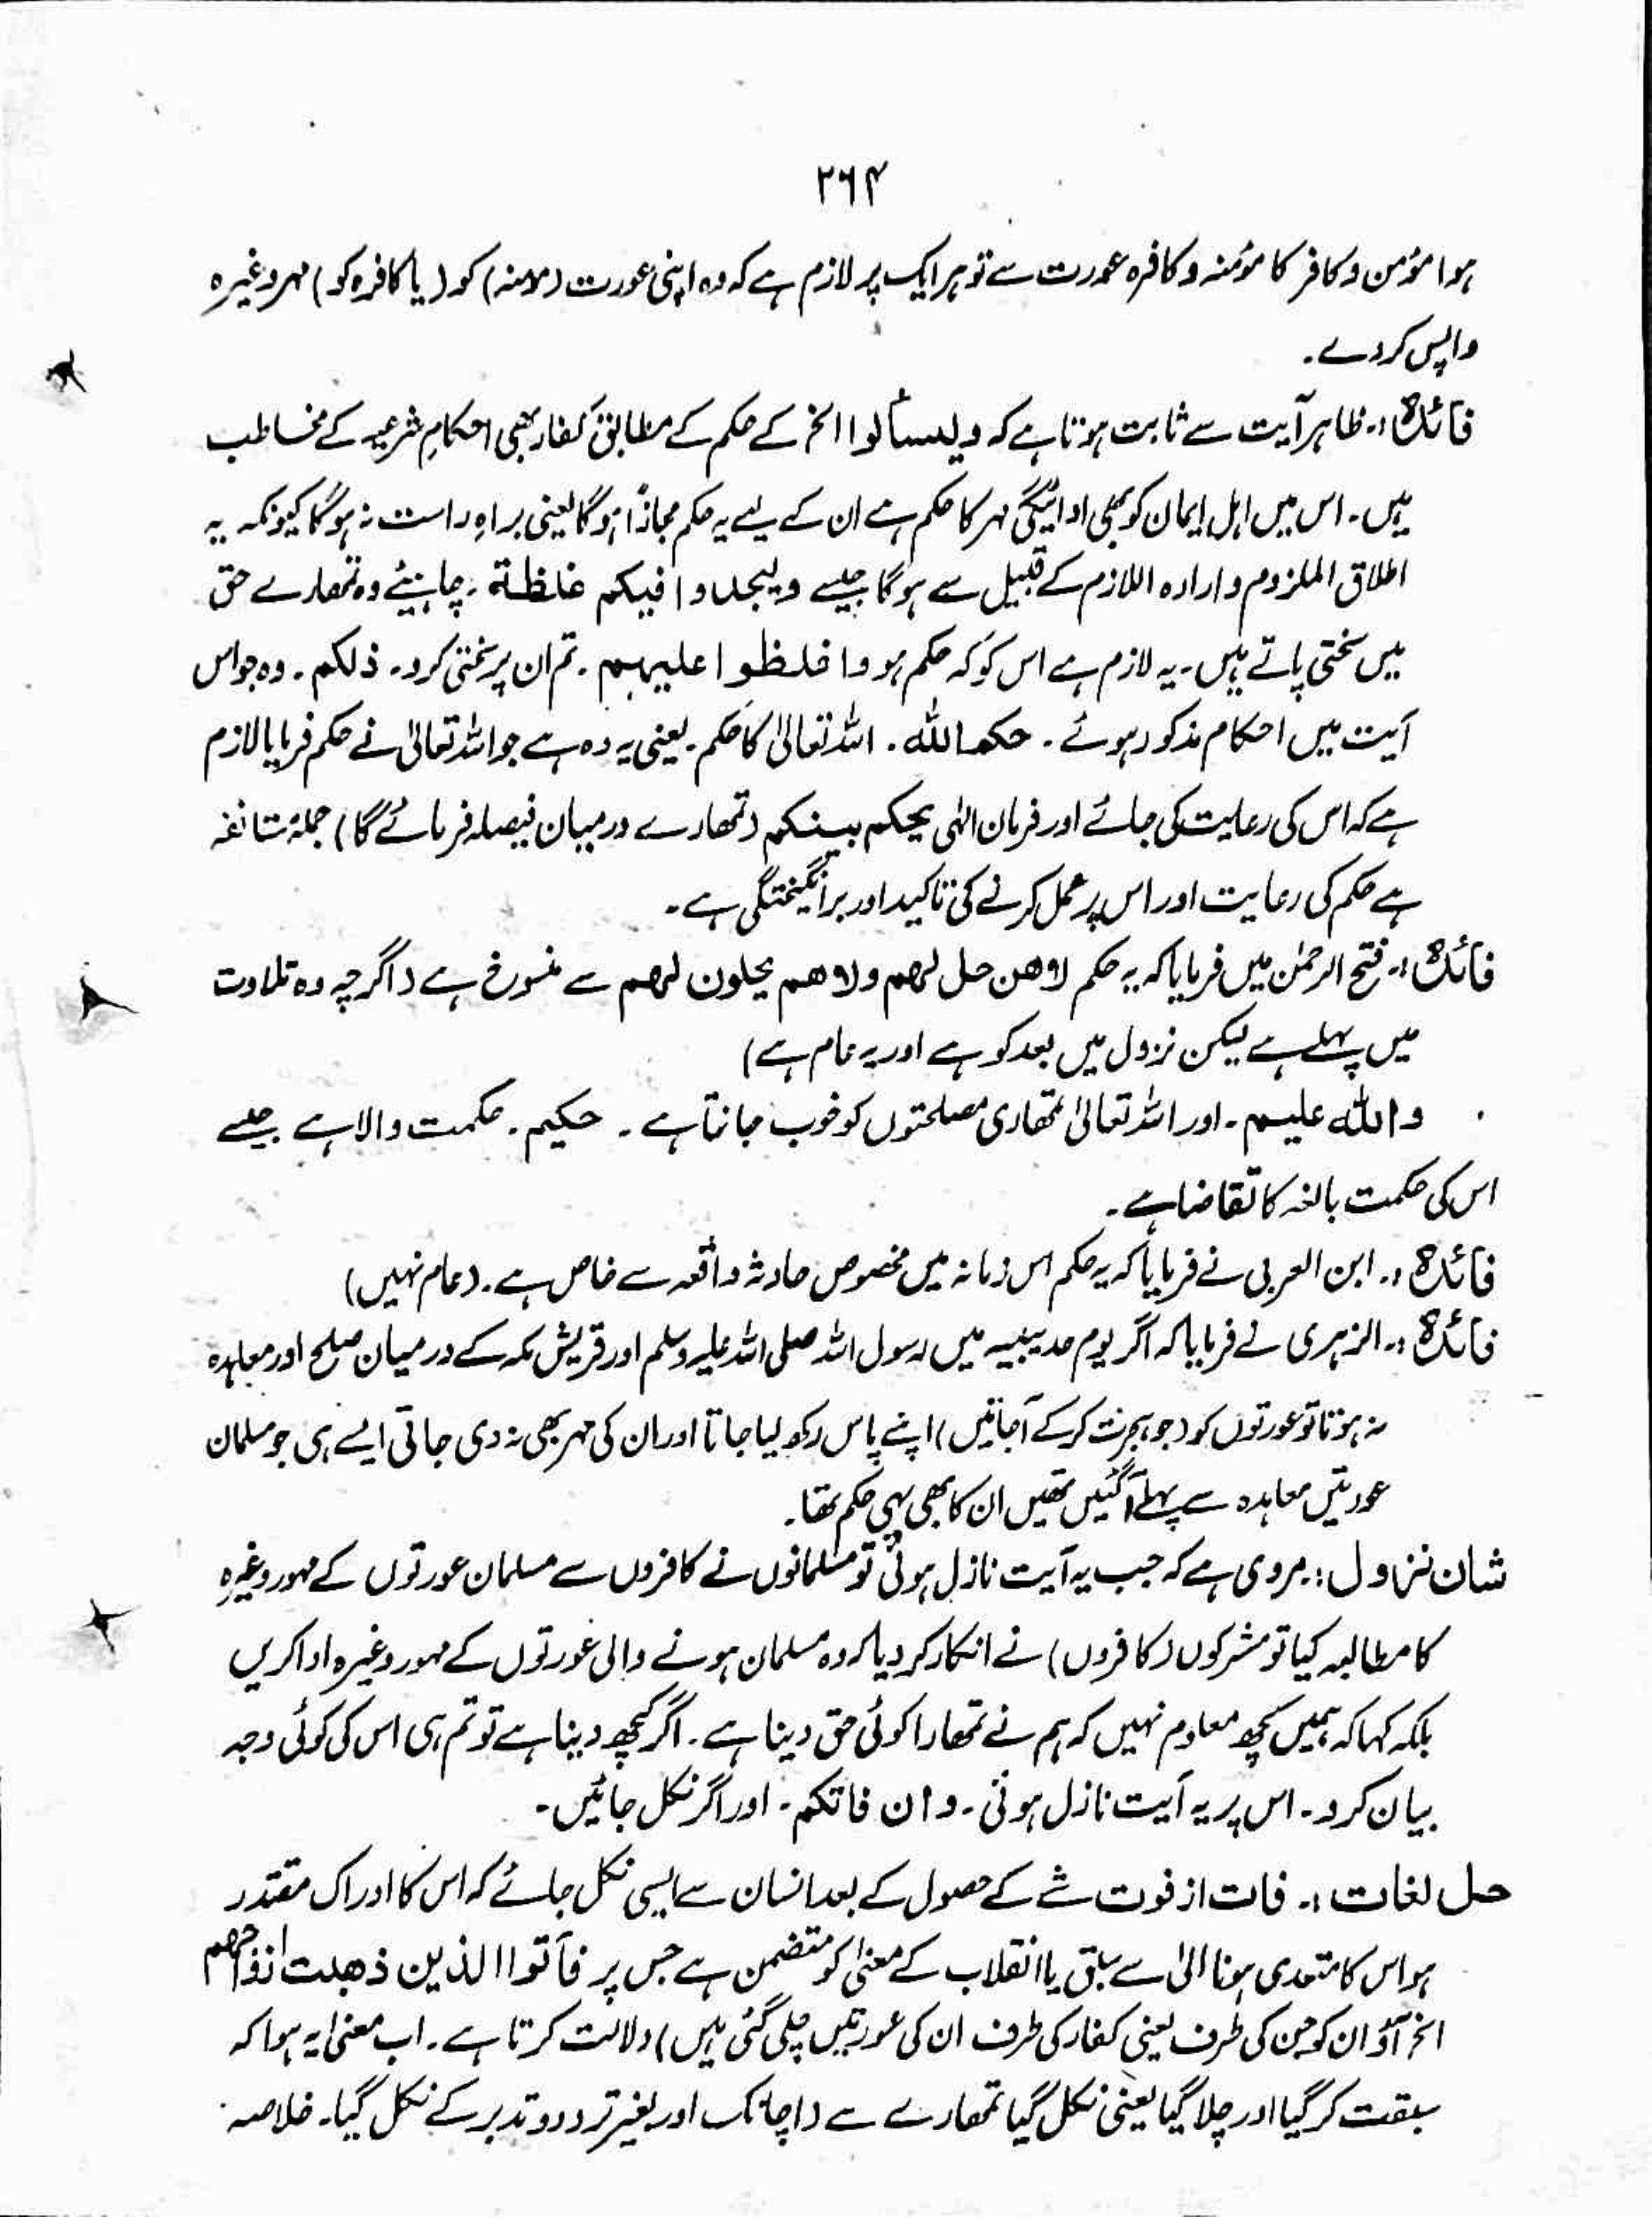 ۲۶۴
ہوا مؤمن و کافر کا مؤمنہ و کافرہ عورت سے تو ہر ایک پر لازم ہے کہ وہ اپنی عورت (مومنہ) کو (یا کافرہ کو) مہر وغیرہ
واپس کردے۔
فائدہ :۔ ظاہر آیت سے ثابت ہوتا ہے کہ ولیسئالوا الخ کے حکم کے مطابق کفار بھی احکامِ شرعیہ کے مخاطب
ہیں۔ اس میں اہل ایمان کو بھی ادائیگی مہر کا حکم ہے ان کے لیے یہ حکم مجازًا ہوگا یعنی براہِ راست نہ ہوگا کیونکہ یہ
اطلاق الملزوم و ارادہ اللازم کے قبیل سے ہوگا جیسے ولیجدوا فیکم غلظة۔ چاہئیے وہ تمھارے حق
میں سختی پاتے ہیں۔ یہ لازم ہے اس کو کہ حکم ہو واغلظوا علیہم۔ تم ان پر سختی کرو۔ ذلکم۔ وہ جو اس
آیت میں احکام مذکور ہوئے۔ حکم اللہ۔ اللہ تعالیٰ کا حکم۔ یعنی یہ وہ ہے جو اللہ تعالیٰ نے حکم فرمایا لازم
ہے کہ اس کی رعایت کی جائے اور فرمان الٰہی یحکم بینکم (تمھارے درمیان فیصلہ فرمائے گا) جملہ مستانفہ
ہے حکم کی رعایت اور اس پر عمل کرنے کی تاکید اور برانگیختگی ہے۔
فائدہ :۔ فتح الرحمٰن میں فرمایا کہ یہ حکم لاھن حل لہم ولا ھم یحلون لہم سے منسوخ ہے (اگرچہ وہ تلاوت
میں پہلے ہے لیکن نزول میں بعد کو ہے اور یہ عام ہے)
واللہ علیم۔ اور اللہ تعالیٰ تمھاری مصلحتوں کو خوب جانتا ہے۔ حکیم۔ حکمت والا ہے جیسے
اس کی حکمت بالغہ کا تقاضا ہے۔
فائدہ :۔ ابن العربی نے فرمایا کہ یہ حکم اس زمانہ میں مخصوص حادثہ واقعہ سے خاص ہے۔ (عام نہیں)
فائدہ :۔ الزہری نے فرمایا کہ اگر یوم حدیبیہ میں رسول اللہ صلی اللہ علیہ وسلم اور قریش مکہ کے درمیان صلح اور معاہدہ
نہ ہوتا تو عورتوں کو (جو ہجرت کرکے آجاتیں) اپنے پاس رکھ لیا جاتا اور ان کی مہر بھی نہ دی جاتی ایسے ہی جو مسلمان
عورتیں معاہدہ سے پہلے آگئیں تھیں ان کا بھی یہی حکم تھا۔
شان نزول :۔ مروی ہے کہ جب یہ آیت نازل ہوئی تو مسلمانوں نے کافروں سے مسلمان عورتوں کے مہور وغیرہ
کا مطالبہ کیا تو مشرکوں (کافروں) نے انکار کر دیا کہ وہ مسلمان ہونے والی عورتوں کے مہور وغیرہ ادا کریں
بلکہ کہا کہ ہمیں کچھ معلوم نہیں کہ ہم نے تمھارا کوئی حق دینا ہے۔ اگر کچھ دینا ہے تو تم ہی اس کی کوئی وجہ
بیان کرو۔ اس پر یہ آیت نازل ہوئی۔ وان فاتکم۔ اور اگر نکل جائیں۔
حل لغات :۔ فات از فوت شے کے حصول کے بعد انسان سے ایسی نکل جائے کہ اس کا ادراک مقتدر
ہو اس کا متعدی ہونا الیٰ سے سبق یا انقلاب کے معنیٰ کو متضمن ہے جس پر فاٰتوا الذین ذھبت ازواجھم
الخ آؤ ان کو جن کی طرف یعنی کفار کی طرف ان کی عورتیں چلی گئی ہیں) دلالت کرتا ہے۔ اب معنیٰ یہ ہوا کہ
سبقت کر گیا اور چلا گیا یعنی نکل گیا تمھارے سے (اچانک اور بغیر تردد و تدبر کے نکل گیا۔ خلاصہ